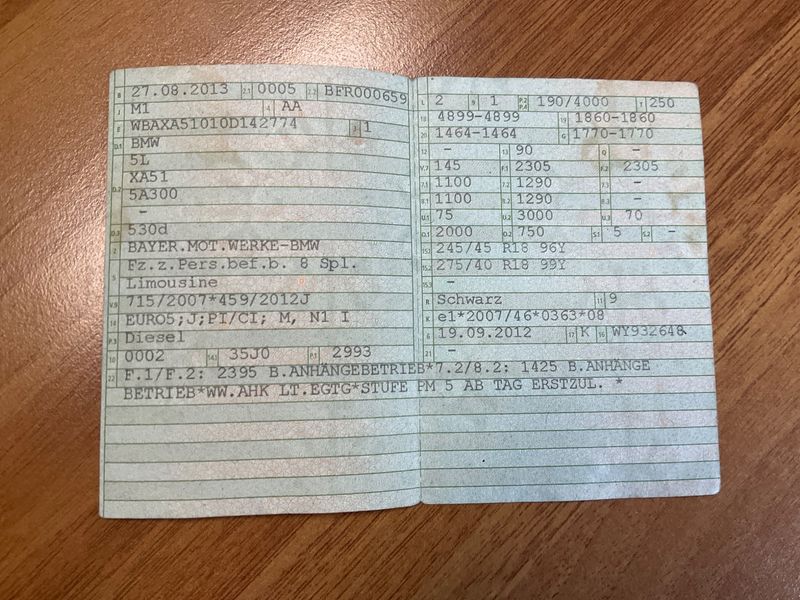 B 27.08.2013 2.1 0005 2.2 BFR000659
J M1 4 AA
E WBAXA51010D142774 3 1
D.1 BMW
5L
D.2 XA51
5A300
-
D.3 530d
2 BAYER.MOT.WERKE-BMW
5 Fz.z.Pers.bef.b. 8 Spl.
Limousine
V.9 715/2007*459/2012J
14 EURO5;J;PI/CI; M, N1 I
P.3 Diesel
10 0002 14.1 35J0 P.1 2993
L 2 9 1 P.2 P.4 190/4000 T 250
18 4899-4899 19 1860-1860
20 1464-1464 G 1770-1770
12 - 13 90 Q -
V.7 145 F.1 2305 F.2 2305
7.1 1100 7.2 1290 7.3 -
8.1 1100 8.2 1290 8.3 -
U.1 75 U.2 3000 U.3 70
O.1 2000 O.2 750 S.1 5 S.2 -
15.1 245/45 R18 96Y
15.2 275/40 R18 99Y
-
R Schwarz 11 9
K e1*2007/46*0363*08
6 19.09.2012 17 K 16 WY932648
21 -
22 F.1/F.2: 2395 B.ANHÄNGEBETRIEB*7.2/8.2: 1425 B.ANHÄNGE
BETRIEB*WW.AHK LT.EGTG*STUFE PM 5 AB TAG ERSTZUL. *